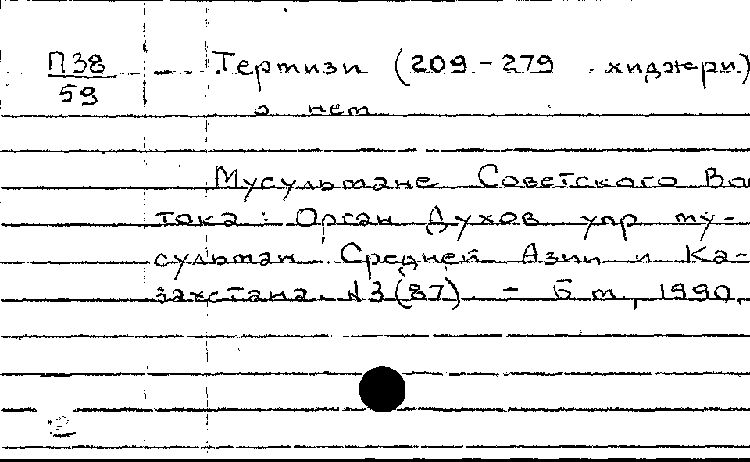 П38 - Термизи (209-279 хиджри.)
59
о нем
Мусульмане Советского Во
тока: Орган Духов упр му-
сульман Средней Азии и Ка-
захстана. N3(87). - Б м, 1990.